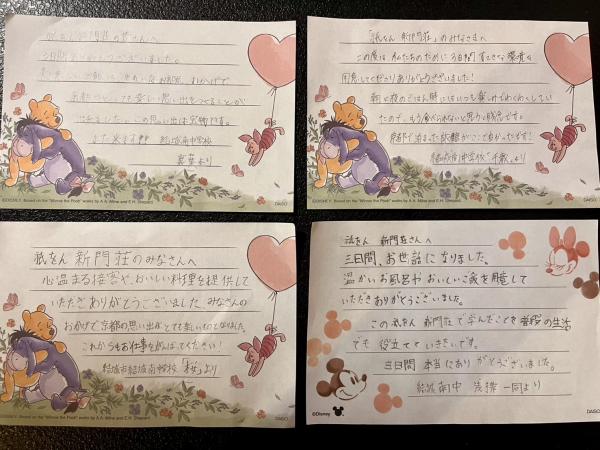 祇をん新門荘の皆さんへ
3日間ありがとうございました。
楽しい思い出をつくることが
できました。この思い出は宝物です。
結城南中学校
より
©DISNEY. Based on the "Winnie the Pooh" works by A.A. Milne and E.H. Shepard.
DAISO
「祇をん 新門荘」のみなさまへ
この度は、私たちのために3日間すてきな環境を
用意してくださりありがとうございました!
朝と夜のごはん時にはいつも楽しみでわくわくしてい
たので、もう食べられないと思うと残念です。
修学旅行で泊まった旅館がここで良かったです!
結城南中学校 より
©DISNEY. Based on the "Winnie the Pooh" works by A.A. Milne and E.H. Shepard.
DAISO
祇をん 新門荘のみなさんへ
心温まる接客や、おいしい料理を提供して
いただきありがとうございました みなさんの
おかげで京都の思い出がとても楽しいものになりました。
これからもお仕事をがんばってください!
結城市結城南中学校 「桜」より
©DISNEY. Based on the "Winnie the Pooh" works by A.A. Milne and E.H. Shepard.
DAISO
祇をん 新門荘さんへ
三日間、お世話になりました。
温かいお風呂やおいしいご飯を用意して
いただきありがとうございました。
この祇をん 新門荘で学んだことを普段の生活
でも役立てていきたいです。
三日間 本当にありがとうございました。
結城南中 一同より
©Disney
DAISO